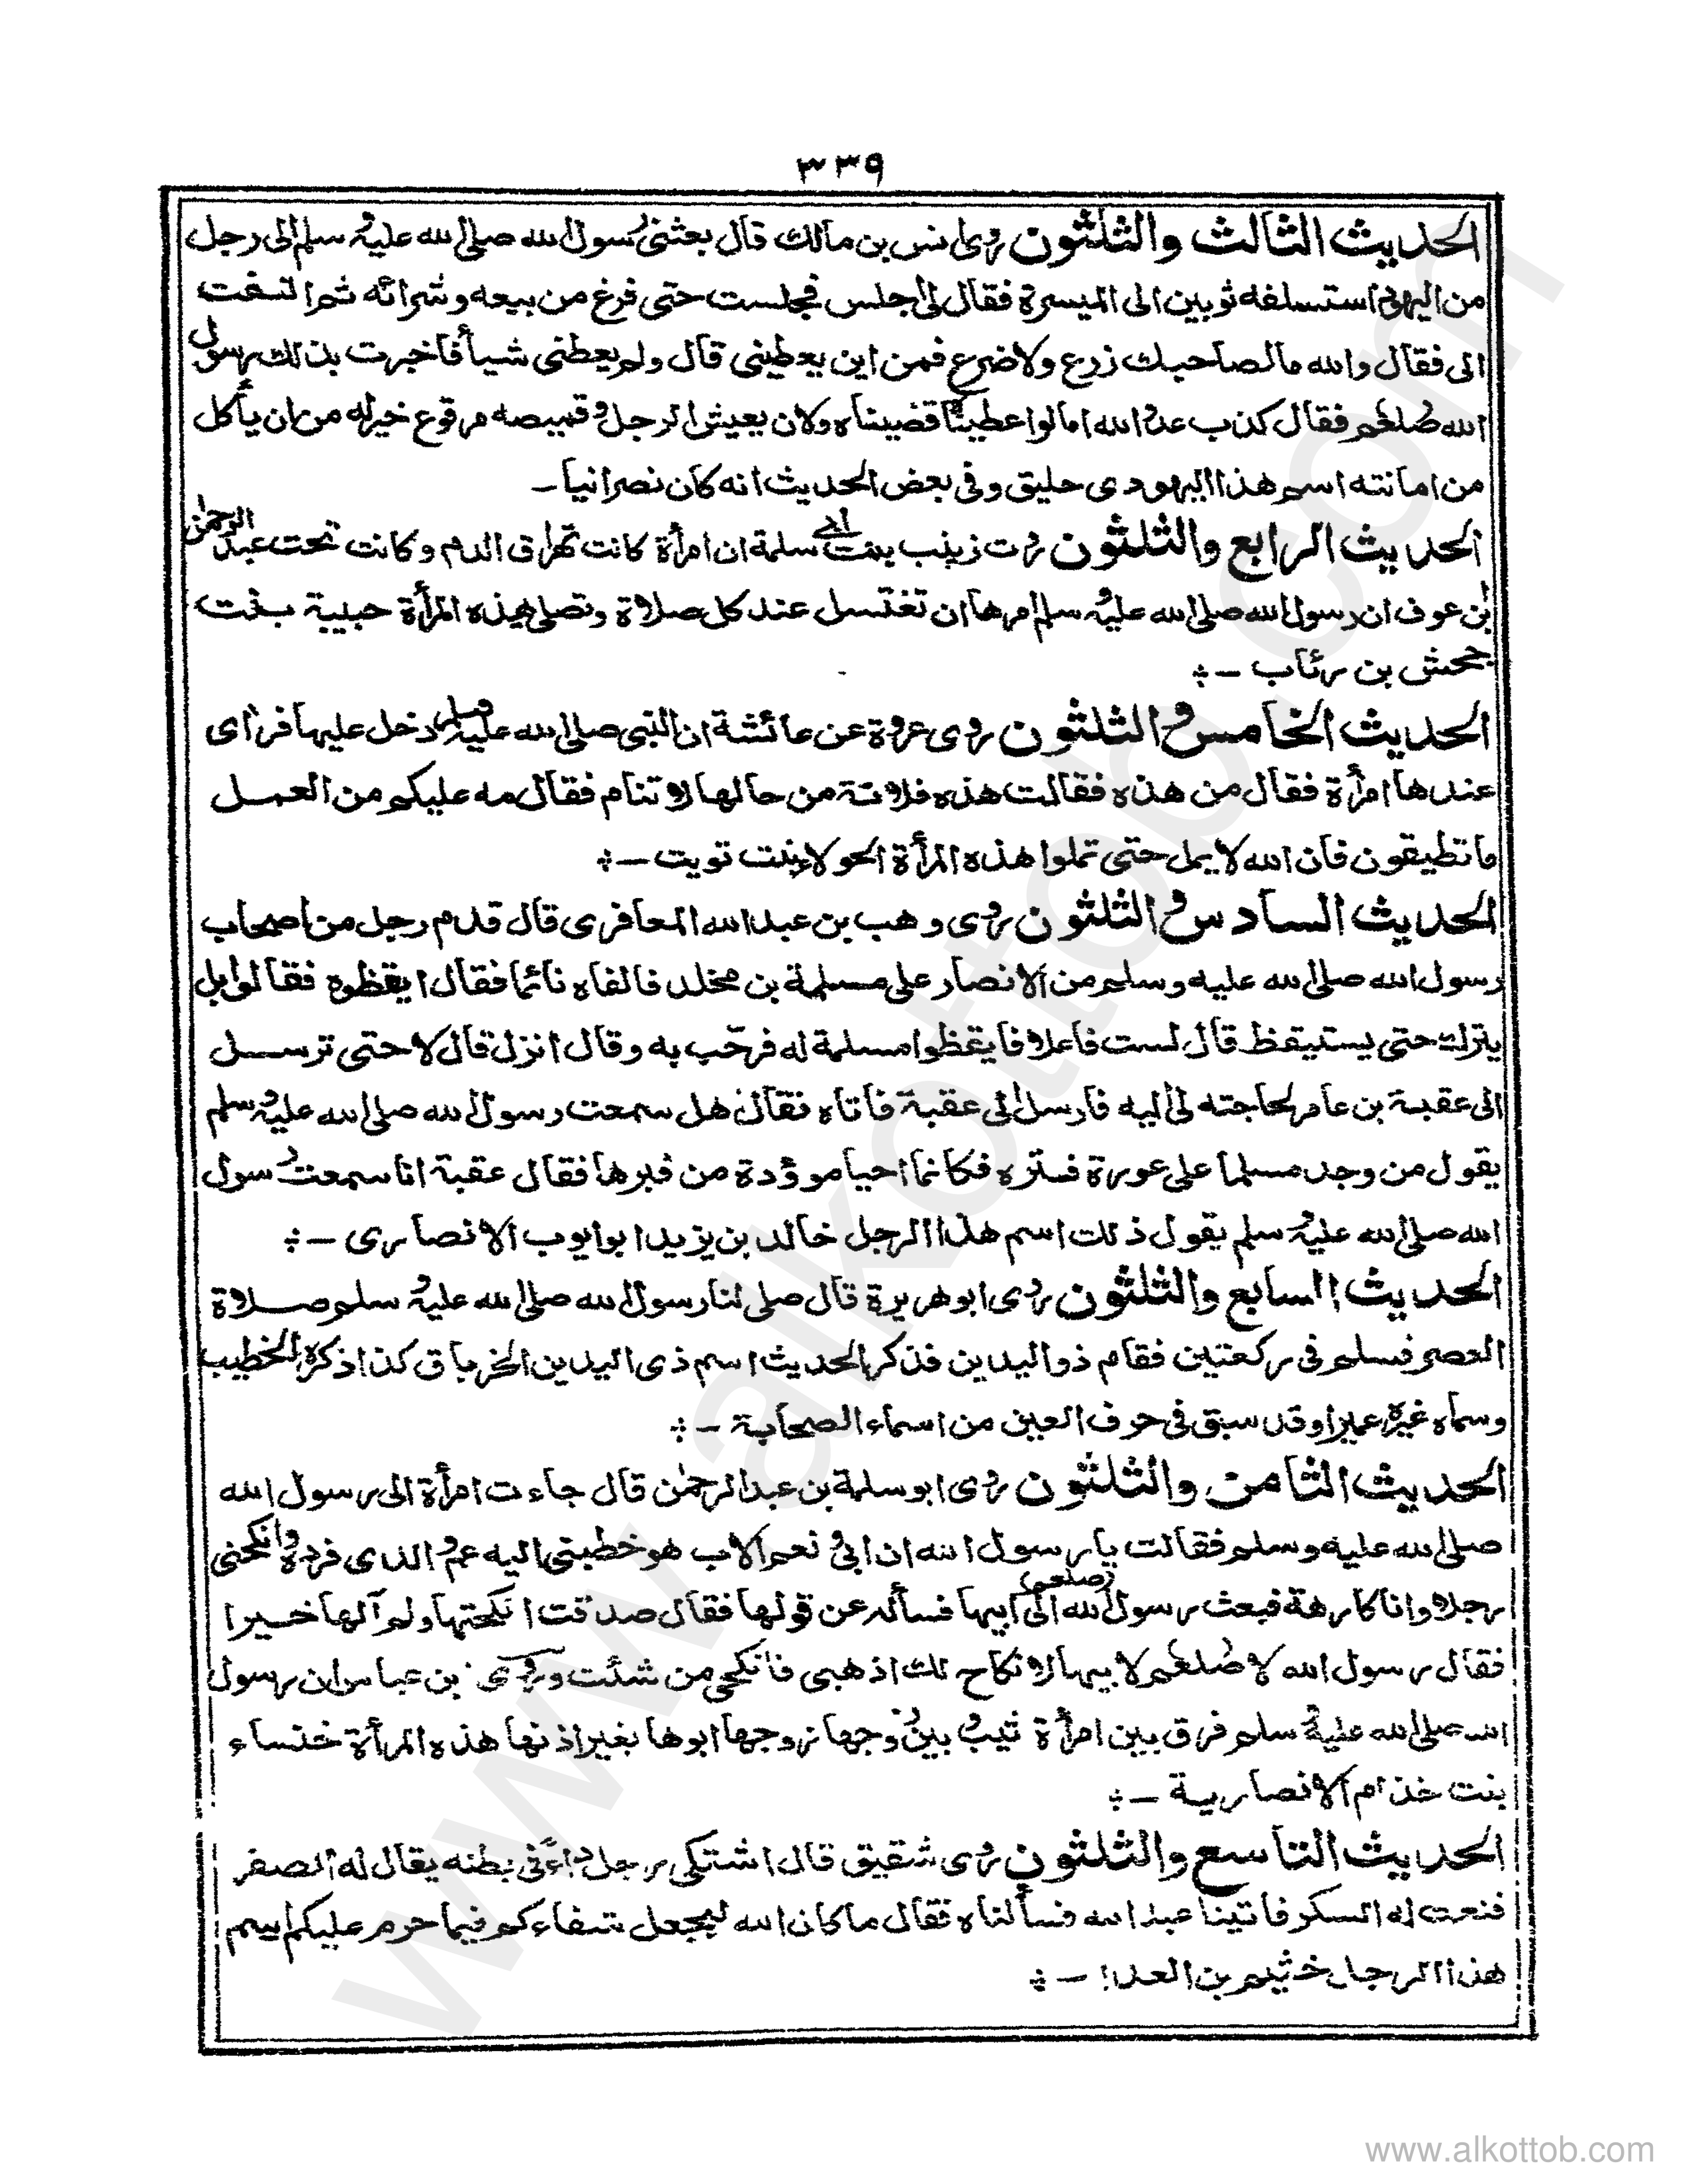 ٣٣٩
الحديث الثالث والثلثون روى انس بن مالك قال بعثنى رسول الله صلى الله عليه وسلم الى رجل
من اليهود استسلفه ثوبين الى الميسرة فقال لى اجلس فجلست حتى فرغ من بيعه وشرائه ثم التفت
الى فقال والله مالصاحبك زرع ولا ضرع فمن اين يعطينى قال ولم يعطنى شيأ فاخبرت بذلك رسول
الله صلعم فقال كذب عدو الله اما لو اعطيتنا قضيناه ولان يعيش الرجل وقميصه مرقوع خير له من ان يأكل
من امانته اسم هذا اليهودى حليق وفى بعض الحديث انه كان نصرانيا -
الحديث الرابع والثلثون روت زينب بنت ابى سلمة ان امرأة كانت تهراق الدم وكانت تحت عبد الرحمٰن
بن عوف ان رسول الله صلى الله عليه وسلم امرها ان تغتسل عند كل صلاة وتصلى هذه المرأة حبيبة بنت
جحش بن رئاب -
الحديث الخامس والثلثون روى عروة عن عائشة ان النبى صلى الله عليه وسلم دخل عليها فرأى
عندها امرأة فقال من هذه فقالت هذه فلانة من حالها لا تنام فقال مه عليكم من العمل
ما تطيقون فان الله لا يمل حتى تملوا هذه المرأة الحولاء بنت تويت -
الحديث السادس والثلثون روى وهب بن عبد الله المعافرى قال قدم رجل من اصحاب
رسول الله صلى الله عليه وسلم من الانصار على مسلمة بن مخلد فالفاه نائما فقال ايقظوه فقالوا بل
يترك حتى يستيقظ قال لست فاعلا فايقظوا مسلمة له فرحّب به وقال انزل قال لا حتى ترسل
الى عقبة بن عامر لحاجته لى اليه فارسل الى عقبة فاتاه فقال هل سمعت رسول الله صلى الله عليه وسلم
يقول من وجد مسلما على عورة فستره فكانما احيا موؤدة من قبرها فقال عقبة انا سمعت رسول
الله صلى الله عليه وسلم يقول ذلك اسم هذا الرجل خالد بن يزيد ابو ايوب الانصارى -
الحديث السابع والثلثون روى ابو هريرة قال صلى لنا رسول الله صلى الله عليه وسلم صلاة
العصر فسلم فى ركعتين فقام ذو اليدين فذكر الحديث اسم ذى اليدين الخرباق كذا ذكره الخطيب
وسماه غيره عميرا وقد سبق فى حرف العين من اسماء الصحابة -
الحديث الثامن والثلثون روى ابو سلمة بن عبد الرحمٰن قال جاءت امرأة الى رسول الله
صلى الله عليه وسلم فقالت يا رسول الله ان ابى ونعم الاب هو خطبنى اليه عم ولدى فرده وانكحنى
رجلا وانا كارهة فبعث رسول الله (صلعم) الى ابيها فسأله عن قولها فقال صدقت انكحتها ولم آلها خيرا
فقال رسول الله صلعم لابيها لا نكاح لك اذهبى فانكحى من شئت وروى بن عباس ان رسول
الله صلى الله عليه وسلم فرق بين امرأة ثيب وبين زوجها زوجها ابوها بغير اذنها هذه المرأة خنساء
بنت خذام الانصارية -
الحديث التاسع والثلثون روى شقيق قال اشتكى رجل داء فى بطنه يقال له الصفر
فنعت له السكر فاتينا عبد الله فسألناه فقال ما كان الله ليجعل شفاءكم فيما حرم عليكم اسم
هذا الرجل خثيم بن العدا -
www.alkottob.com
www.alkottob.com